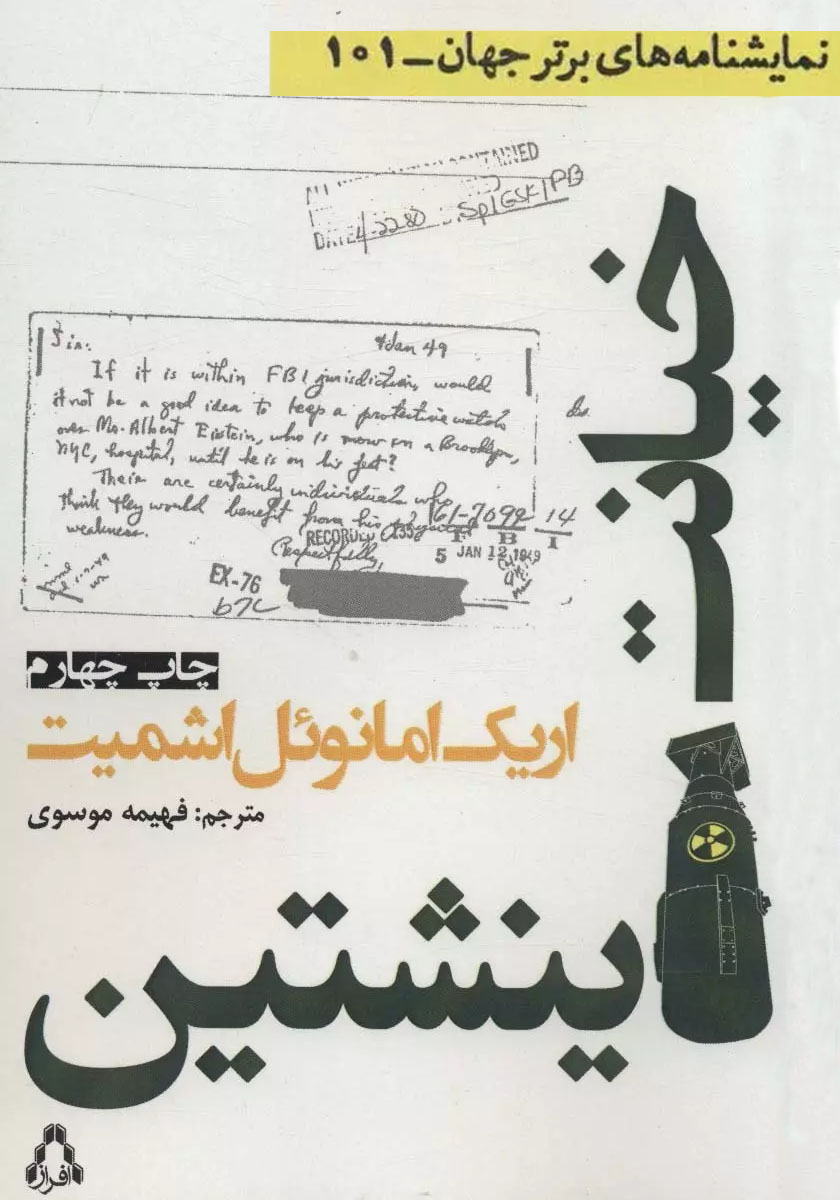 نمایشنامه‌های برتر جهان - ۱۰۱
CONTAINED
DATE 4-22-80 Sp1GSK/PB
خیانت
Sir:
4 Jan 49
If it is within FBI jurisdiction, would
it not be a good idea to keep a protective watch
over Mr. Albert Einstein, who is now in a Brooklyn,
NYC, hospital, until he is on his feet?
There are certainly individuals who
think they would benefit from his
weakness.
61-7099-14
RECORDED
F B I
5 JAN 12 1949
Respectfully,
EX-76
b7c
چاپ چهارم
اریک امانوئل اشمیت
مترجم: فهیمه موسوی
اینشتین
افراز